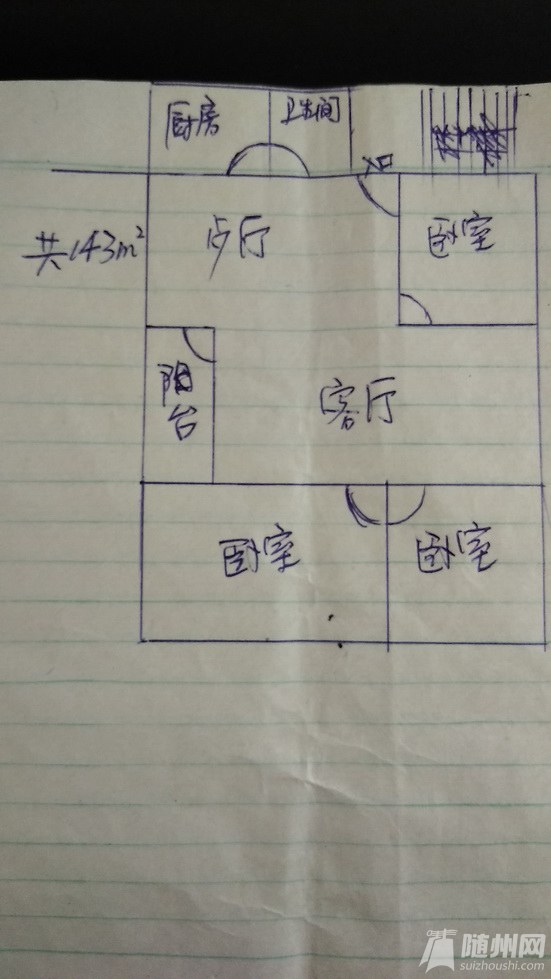 厨房
卫生间
共143m²
卧室
阳台
客厅
卧室
卧室
随州网
suizhoushi.com